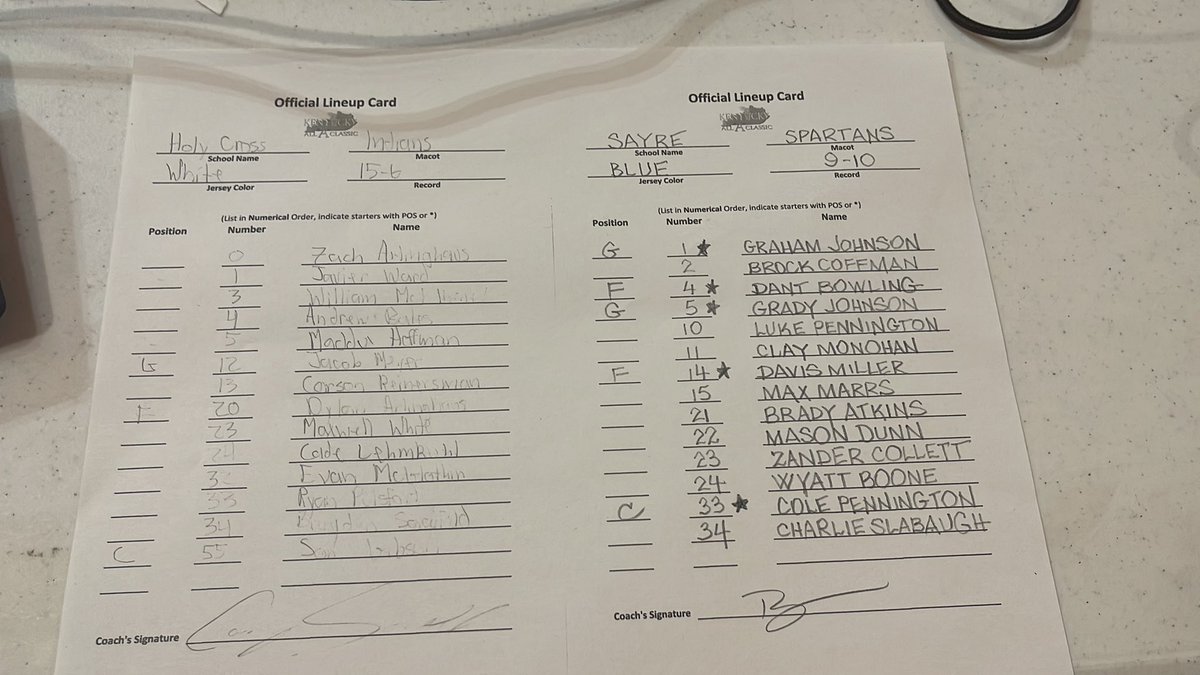 Official Lineup Card
KENTUCKY
ALL A CLASSIC
Holy Cross Indians
School Name Macot
White 15-6
Jersey Color Record
(List in Numerical Order, indicate starters with POS or *)
Position Number Name
0 Zach Arlinghaus
1 Javier Ward
3 William
4 Andrew
5 Maddux Hoffman
G 12 Jacob Meyer
13 Carson Reinersman
F 20 Dylan Arlinghaus
23 Maxwell White
24 Cade Lehmkuhl
Evan
33 Ryan
34
C 55 Sam
Coach's Signature
Official Lineup Card
KENTUCKY
ALL A CLASSIC
SAYRE SPARTANS
School Name Macot
BLUE 9-10
Jersey Color Record
(List in Numerical Order, indicate starters with POS or *)
Position Number Name
G 1 ★ GRAHAM JOHNSON
2 BROCK COFFMAN
F 4 ★ DANT BOWLING
G 5 ★ GRADY JOHNSON
10 LUKE PENNINGTON
11 CLAY MONOHAN
F 14 ★ DAVIS MILLER
15 MAX MARRS
21 BRADY ATKINS
22 MASON DUNN
23 ZANDER COLLETT
24 WYATT BOONE
C 33 ★ COLE PENNINGTON
34 CHARLIE SLABAUGH
Coach's Signature